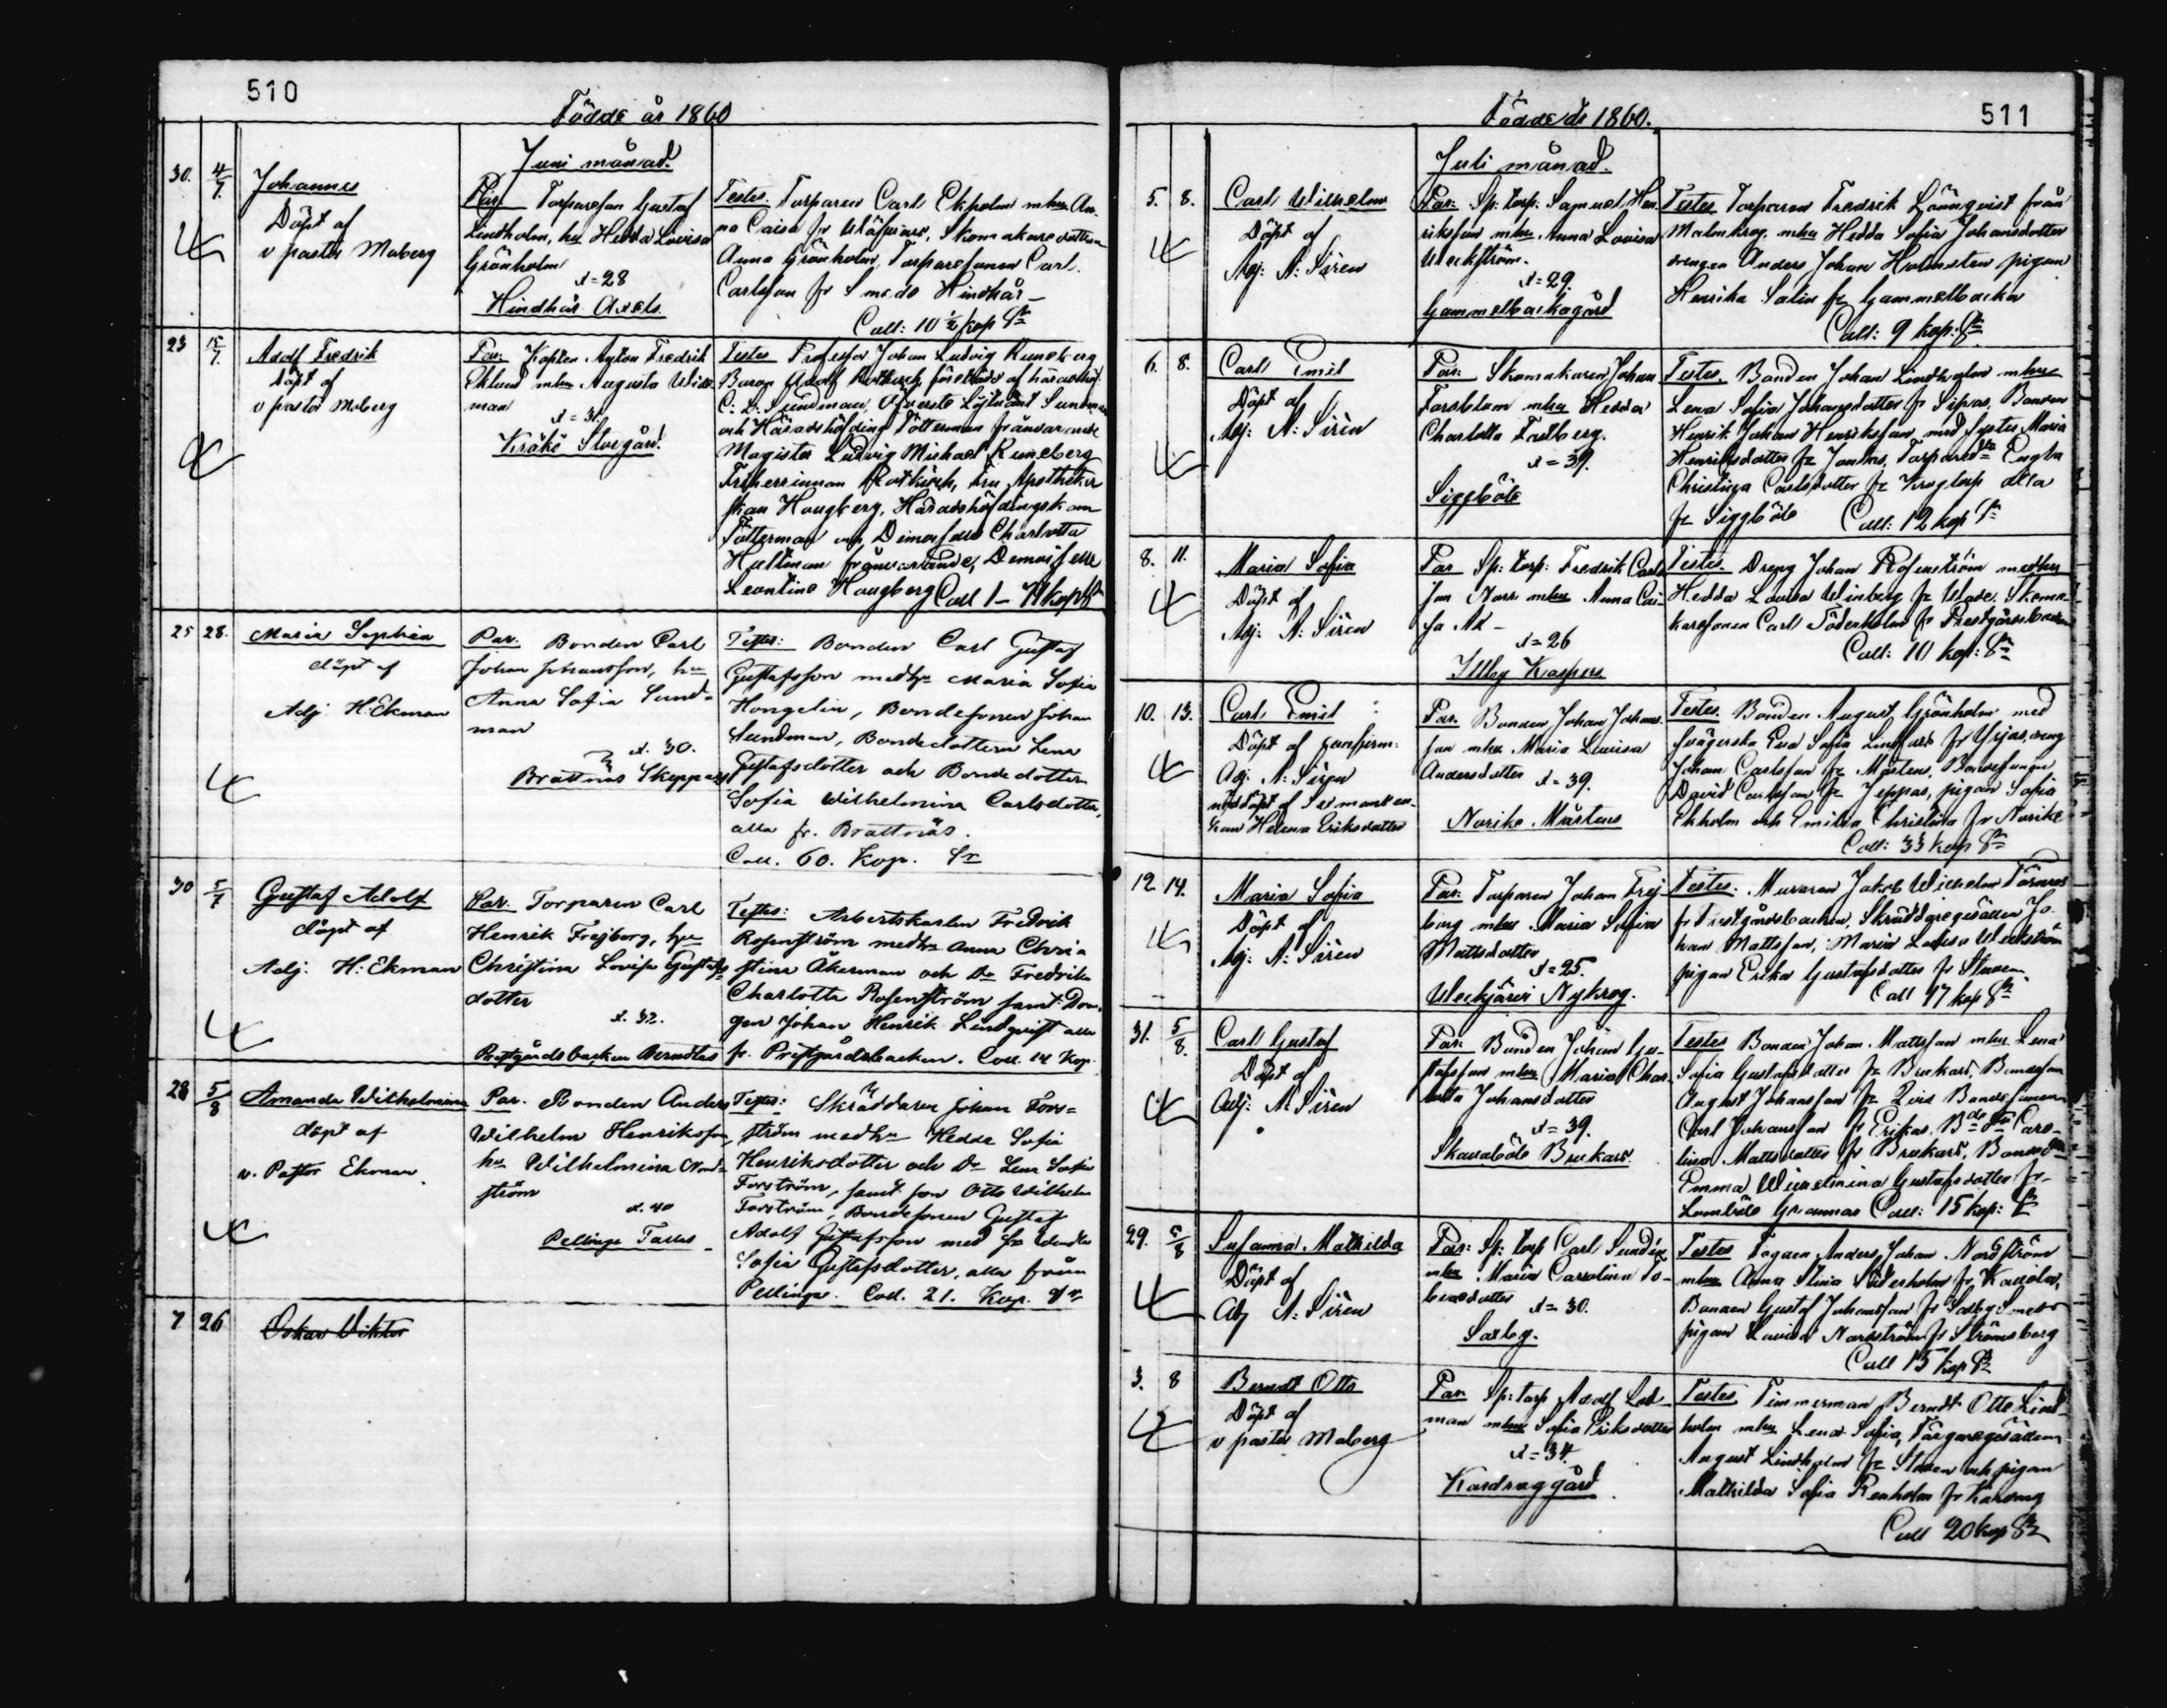 510
Födde år 1860
Juni månad.
30. 4/7
Johannes
Döpt af
v pastor Moberg
Par Torparesson Gustaf
Lindholm, hu Hedda Lovisa
Grönholm
x=28
Hindhår Axels
Testes. Torparen Carl Ekholm m hu An-
na Caisa fr
Anna Grönholm, Torparesonen Carl
Carlsson fr Smeds Hindhår
Coll: 10 ½ kop Sr
23 15/7
Adolf Fredrik
Döpt af
v pastor Moberg
Par: Fredrik
Eklund mhu Augusta Wid-
man
x=31.
Kråkö Storgård
Testes Professor Johan Ludvig Runeberg
Baron Adolf Rotkirch, företrädd af häradshöf:
C: L: Sundman, Öfverste Löjtnant Sundman
och Häradshöfding Tötterman frånvarande
Magister Ludvig Michael Runeberg
Friherrinnan Rotkirch, Fru Apothekar
skan Hougberg, Häradshöfdingskan
Tötterman och Demoiselle Charlotta
Hultman frånvarande, Demoiselle
Leontine Hougberg Coll 1–
25 28.
Maria Sophia
döpt af
Adj H: Ekman
Par. Bonden Carl
Johan Johansson, hu
Anna Sofia Sund-
man
x. 30.
Brattnäs Skeppars
Testes: Bonden Carl Gustaf
Gustafsson medhu Maria Sofia
Hongelin, Bondesonen Johan
Sundman, Bondedottern Lena
Gustafsdotter och Bondedottern
Sofia Wilhelmina Carlsdotter,
alla fr. Brattnäs.
Coll. 60. Kop. Sr
30 5/7
Gustaf Adolf
döpt af
Adj. H: Ekman
Par. Torparen Carl
Henrik Frejborg, hu
Christina Lovisa Gustafs-
dotter
x. 32.
Prestgårdsbacken Berndtas
Testes: Arbetskarlen Fredrik
Rosenström medhu Anna Chri
stina Åkerman och Dr Fredrika
Charlotta Rosenström samt Dren-
gen Johan Henrik Lindqvist alla
fr. Prestgårdsbacken. Coll. 14 Kop.
28 5/8
Amanda Wilhelmina
döpt af
v. Pastor Ekman
Par. Bonden Anders
Wilhelm Henriksson,
hu Wilhelmina Nord-
ström
x. 40
Pellinge
Testes: Skräddaren Johan Fors-
ström medhu Hedda Sofia
Henriksdotter och Dr Lena Sofia
Forström, samt son Otto Wilhelm
Forström, Bondesonen Gustaf
Adolf Gustafsson med
Sofia Gustafsdotter, alla från
Pellinge. Coll. 21. Kop. Sr
7 26
Oskar Viktor
511
Födde år 1860.
Juli månad.
5. 8.
Carl Wilhelm
Döpt af
Adj: A: Sirèn
Par: Sp: torp: Samuel Hen-
riksson mhu Anna Lovisa
Weckström.
x=29.
Gammelbackagård
Testes Torparen Fredrik Lönnqvist från
Malmkrog, mhu Hedda Sofia Johansdotter
drengen Anders Johan Holmsten pigan
Henrika Salin fr Gammelbacka
Coll: 9 kop: Sr
6. 8.
Carl Emil
Döpt af
Adj: A: Sirèn
Par: Skomakaren Johan
Forsblom mhu Hedda
Charlotta Forsberg.
x=39.
Siggböle
Testes. Bonden Johan Lindholm mhu
Lena Sofia Johansdotter fr Sipas, Bonden
Henrik Johan Henriksson, med syster Maria
Henriksdotter fr Torpared:r Engla
Christina Carlsdotter fr Krogtorp alla
fr Siggböle Coll: 12 kop Sr
8. 11.
Maria Sofia
Döpt af
Adj: A: Sirèn
Par Sp: torp: Fredrik Carls-
son Norr mhu Anna Cai-
sa
x=26
Illby Kaspers
Testes. Dreng Johan Rosenström medhu
Hedda Lovisa Winberg fr Skoma-
karesonen Carl Söderholm fr Prestgårdsbacken
Coll: 10 kop: Sr
10. 13.
Carl Emil
Döpt af
Adj. A: Sirèn
nöddöpt af
Helena Eriksdotter
Par. Bonden Johan Johans-
son mhu Maria Lovisa
Andersdotter x=39.
Norike Mårtens
Testes. Bonden August Grönholm med
svägerska Eva Sofia fr dreng
Johan Carlsson fr Mårtens, Bondesonen
David Carlsson fr Jeppas, pigan Sofia
Ekholm och Emilia Christina fr Norike
Coll: 33 kop Sr
12. 14.
Maria Sofia
Döpt af
Adj: A: Sirèn
Par: Torparen Johan Frej-
borg mhu Maria Sofia
Mattsdotter
x=25.
Weckjärvi Nykrog.
Testes: Muraren Jakob Wilhelm Törnroos
fr Prestgårdsbacken, Skräddaregesällen Jo-
han Mattsson, Maria Lovisa Weckström
pigan Erika Gustafsdotter fr Staden
Coll 17 kop Sr
31. 5/8.
Carl Gustaf
Döpt af
Adj: A: Sirèn
Par: Bonden Johan Gu-
stafsson mhu Maria Char-
lotta Johansdotter
x=39.
Skavaböle Brukars
Testes Bonden Johan Mattsson mhu Lena
Sofia Gustafsdotter fr Bruckars, Bondeson
August Johansson fr Bondesonen
Carl Johansson fr Erikas. Caro-
lina Mattsdotter fr Bruckars, Bonded:r
Emma Wilhelmina Gustafsdotter fr
Lomböle Coll: 15 kop: Sr
29. 5/8
Susanna Mathilda
Döpt af
Adj A: Sirèn
Par: Sp: torp Carl Sundén
mhu Maria Carolina To-
biasdotter
x=30.
Saxby.
Testes Anders Johan Nordström
mhu Anna Stina Söderholm fr
Bonden Gustaf Johansson fr Saxby
pigan Lovisa Nordström fr Strömsberg
Coll 15 kop Sr
3. 8
Berndt Otto
Döpt af
v pastor Moberg
Par Sp: torp Adolf Lod-
man mhu Sofia Eriksdotter
x=34.
Kardraggård
Testes Timmerman Berndt Otto Lind-
holm mhu Lena Sofia, Färgaregesällen
August Lindholm fr Staden och pigan
Mathilda Sofia Renholm fr
Coll 20 kop Sr